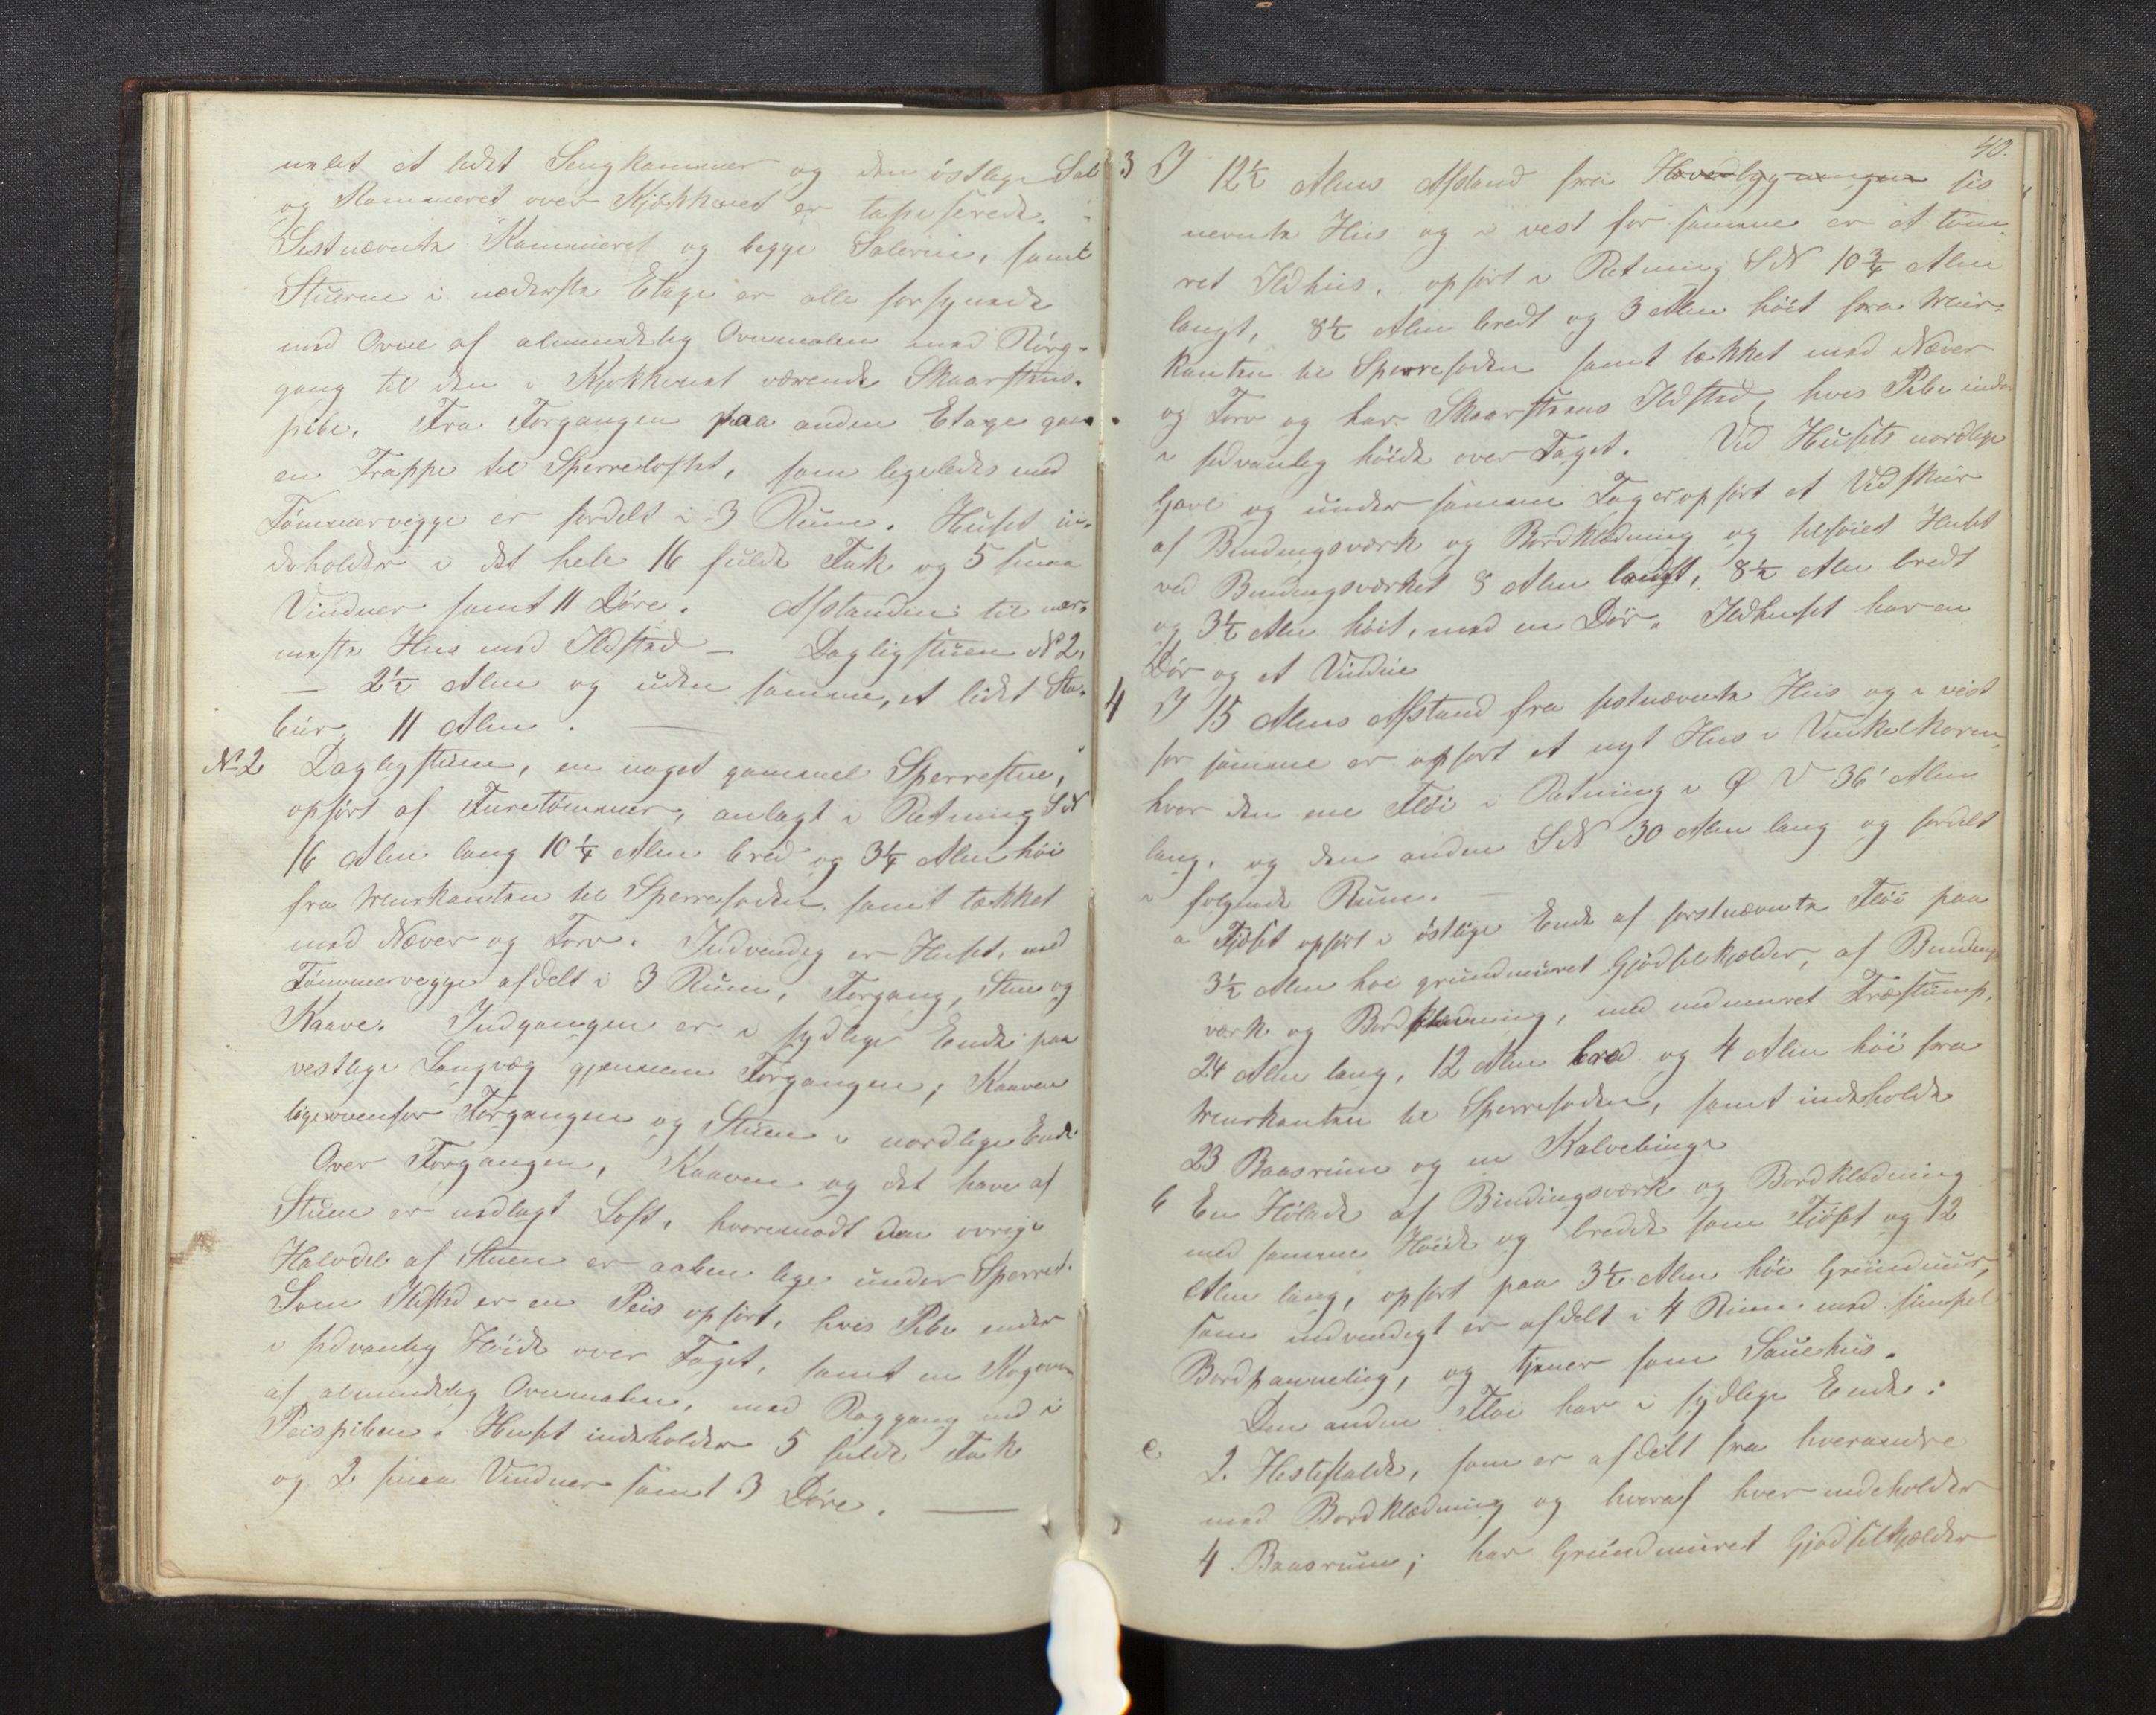 uelet et lidet Sengkammer og den östlige Sal
og Kammeret over Kjökkenet er tapiserede.
Sistnævnte Kammeret og begge Salerne, samt
Stuerne i nederste Etage er alle forsynede
med Ovne af almindelig Ovnmalm med Rörg-
gang til den i Kjökkenet værende Skaarstens-
pibe. Fra Forgangen paa anden Etage gaar
en Trappe til Sperreloftet, som ligeledes med
Tömmervegge er fordelt i 3 Rum. Huset in-
deholder i det hele 16 fulde Fak og 5 smaa
Vinduer samt 11 Döre. Afstanden til nær-
meste Hus med Ildsted – Dagligstuen No 2,
– 2½ Alen og uden samme, et lidet Sta-
bur 11 Alen. –
No 2 Dagligstuen, en noget gammel Sperrestue,
opfört af Furetömmer, anlagt i Retning S N
16 Alen lang 10¼ Alen bred og 3¼ Alen höi
fra Murkanten til Sperrefoden samt tækket
med Næver og Torv. Indvendig er Huset, med
Tömmervegge afdelt i 3 Rum, Forgang, Stue og
Kaave. Indgangen er i sydlige Ende paa
vestlige Langvæg gjennem Forgangen; Kaaven
ligeovenfor Forgangen og Stuen i nordlige Ende
Over Forgangen, Kaaven og det halve af
Stuen er nedlagt Loft, hvoremodt den övrige
Halvdel af Stuen er aaben lige under Sperret.
Som Ildsted er en Peis opfört, hvis Pibe ender
i sedvanlig Höide over Taget, samt en Kogeovn
af almindelig Ovnmalm, med Röggang ind i
Peispiben. Huset indeholder 5 fulde Fak
og 2 smaa Vinduer samt 3 Döre. –
40.
3 I 12½ Alens Afstand fra Hovedbygningen sis
nevnte Hus og i vest for samme er et töm-
ret Ildhus, opfört i Retning S N 10¾ Alen
langt, 8½ Alen bredt og 3 Alen höit fra Mur-
kanten til Sperrefoden samt tækket med Næver
og Torv og har Skaarstens Ildsted, hvis Pibe ender
i sedvanlig höide over Taget. Ved Husets nordlige
Gavl og under samme Tag er opfört et Vedskur
af Bindingsværk og Bordklædning og tilföiet Huset
ved Bindingsværket 8 Alen langt, 8½ Alen bredt
og 3½ Alen höit, med en Dör. Ildhuset har en
Dör og et Vindue
4 I 15 Alens Afstand fra sistnævnte Hus og i vest
for samme er opfört et nyt Hus i Vinkelform,
hvor den ene Flöi i Retning i Ø V 36 Alen
lang, og den anden S N 30 Alen lang og fordelt
i fölgende Rum. –
a Fjöset opfört i östlige Ende af forstnævnte Flöi paa
3½ Alen höi grundmuret Gjödselkjelder, af Bindings
værk og Bordklædning, med indmuret Træstump,
24 Alen lang, 12 Alen bred og 4 Alen höi fra
Murkanten til Sperrefoden, samt indeholde
23 Baasrum og en Kalvebinge
b En Hölade af Bindingsværk og Bordklædning
med samme Höide og bredde som Fjöset og 12
Alen lang, opfört paa 3½ Alen höi Grundmur,
som indvendigt er afdelt i 4 Rum med simpel
Bordpanneling, og tjener som Sauehus.
Den anden Flöi har i sydlige Ende:
c 2 Hestestalde, som er afdelt fra hverandre
med Bordklædning og hvoraf hver indeholder
4 Baasrum; har Grundmuret Gjödselkjelder